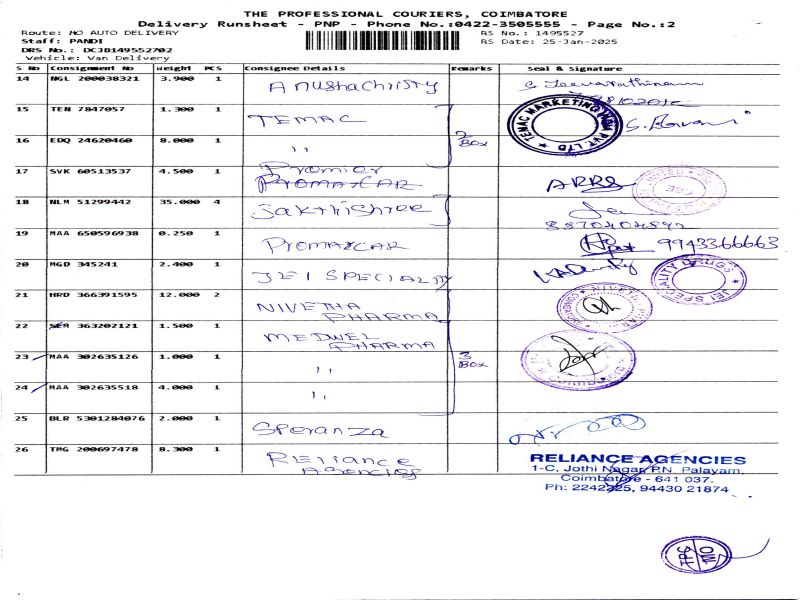 THE PROFESSIONAL COURIERS, COIMBATORE
Delivery Runsheet - PNP - Phone No.:0422-3505555 - Page No.:2
Route: MO AUTO DELIVERY
RS No.: 1495527
Staff: PANDI
RS Date: 25-Jan-2025
DRS No.: DCJB149552702
Vehicle: Van Delivery
S No Consignment No Weight PCS Consignee Details Remarks Seal & Signature
14 NGL 200038321 3.900 1 Anushachristy
15 TEN 7847057 1.300 1 TEMAC
TEMAC MARKETING PVT. LTD
16 EDQ 24620460 8.000 1 ,, 2 Box
17 SVK 60513537 4.500 1 Promier
PROMAXCAR ARRS
18 NLM 51299442 35.000 4 Sakthishree
8870404592
19 MAA 650596938 0.250 1 PROMAXCAR 9943366663
20 MGD 345241 2.400 1 JEI SPECIALITY
JEI SPECIALITY DRUGS
21 HRD 366391595 12.000 2 NIVETHA
PHARMA
22 SEM 363202121 1.500 1 MEDWEL
PHARMA
23 MAA 302635126 1.000 1 ,, 3 Box
24 MAA 302635518 4.000 1 ,,
25 BLR 5301284076 2.000 1 Speranza
26 TMG 200697478 8.300 1 Reliance
Agencies
RELIANCE AGENCIES
1-C, Jothi Nagar, P.N. Palayam,
Coimbatore - 641 037.
Ph: 2242325, 94430 21874
TPC
MO